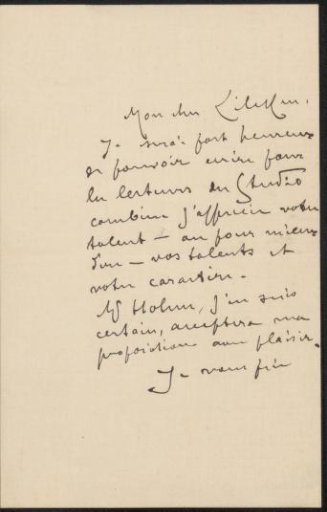 Mon cher
Je serai fort heureux
de pouvoir écrire pour
les lecteurs du Studio
combien j'apprécie votre
talent — ou pour mieux
dire — vos talents et
votre caractère.
Mr Holme, j'en suis
certain, acceptera ma
proposition avec plaisir.
Je vous prie